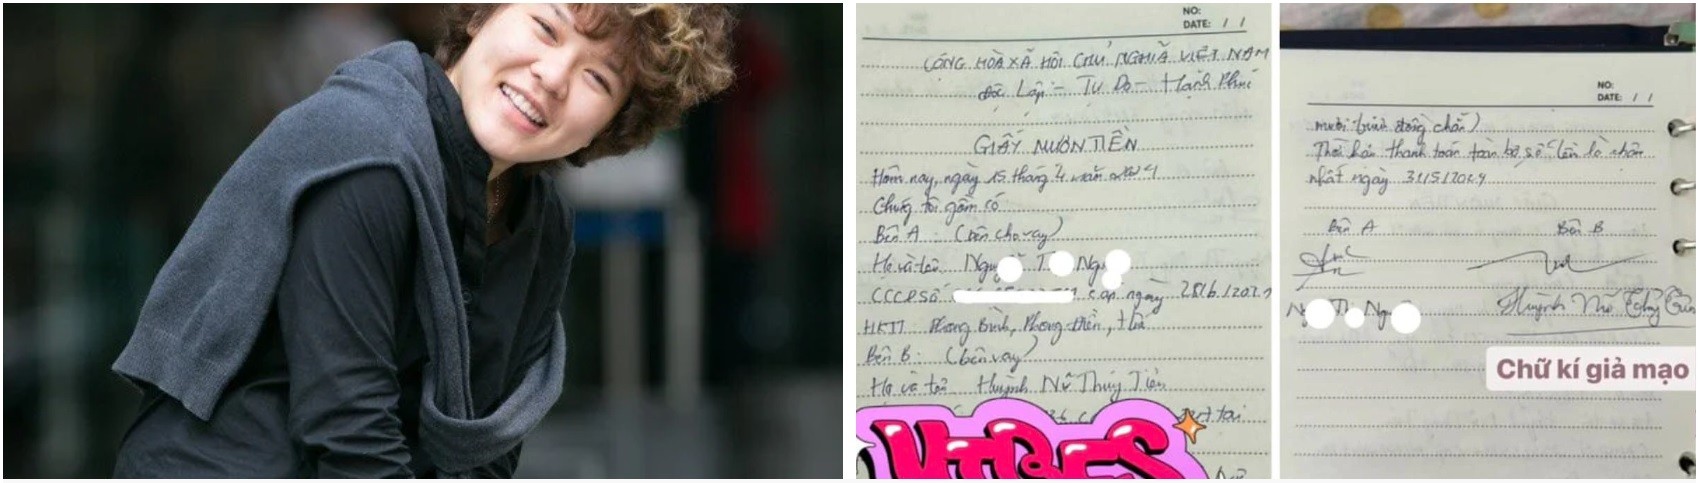 NO:
DATE: / /
CỘNG HÒA XÃ HỘI CHỦ NGHĨA VIỆT NAM
Độc Lập - Tự Do - Hạnh Phúc
GIẤY MƯỢN TIỀN
Hôm nay, ngày 15 tháng 4 năm 2024
Chúng tôi gồm có
Bên A: (bên cho vay)
Họ và tên
CCCD Số: cấp ngày 28/6/2021
HKTT Phong Bình, Phong Điền, Huế
Bên B: (bên vay)
Họ và tên Huỳnh Nữ Thúy Tiên
VIBES
NO:
DATE: / /
mươi triệu đồng chẵn)
Thời hạn thanh toán toàn bộ số tiền là chậm
nhất ngày 31/5/2024
Bên A Bên B
Huỳnh Nữ Thúy
Chữ kí giả mạo